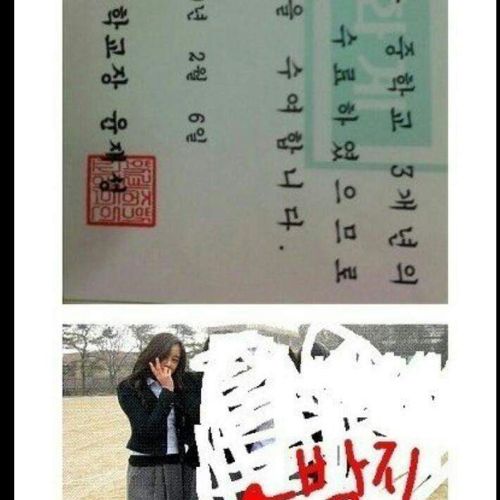 중학교 3개년의
수료하였으므로
을 수여합니다.
년 2월 6일
학교장 윤재